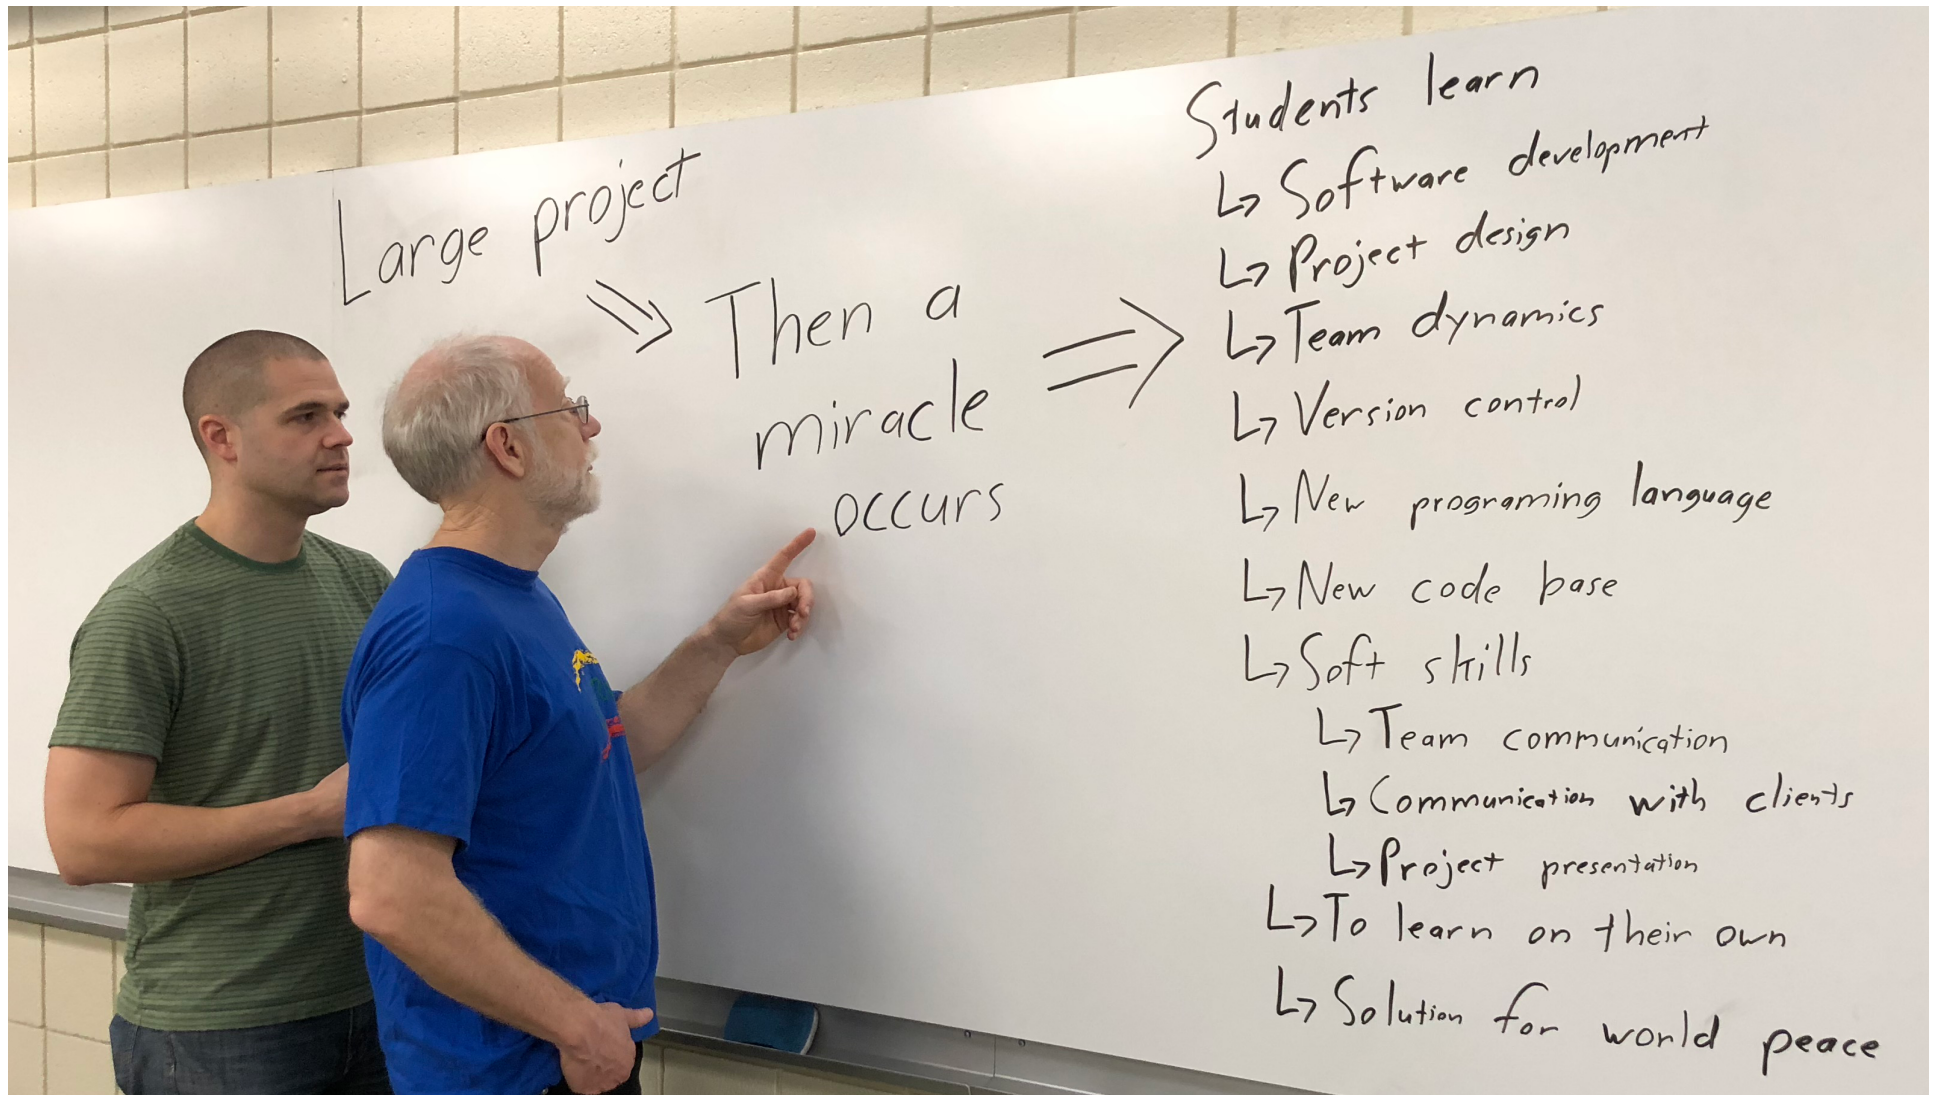 Large project
Then a
miracle
occurs
Students learn
Software development
Project design
Team dynamics
Version control
New programing language
New code base
Soft skills
Team communication
Communication with clients
Project presentation
To learn on their own
Solution for world peace